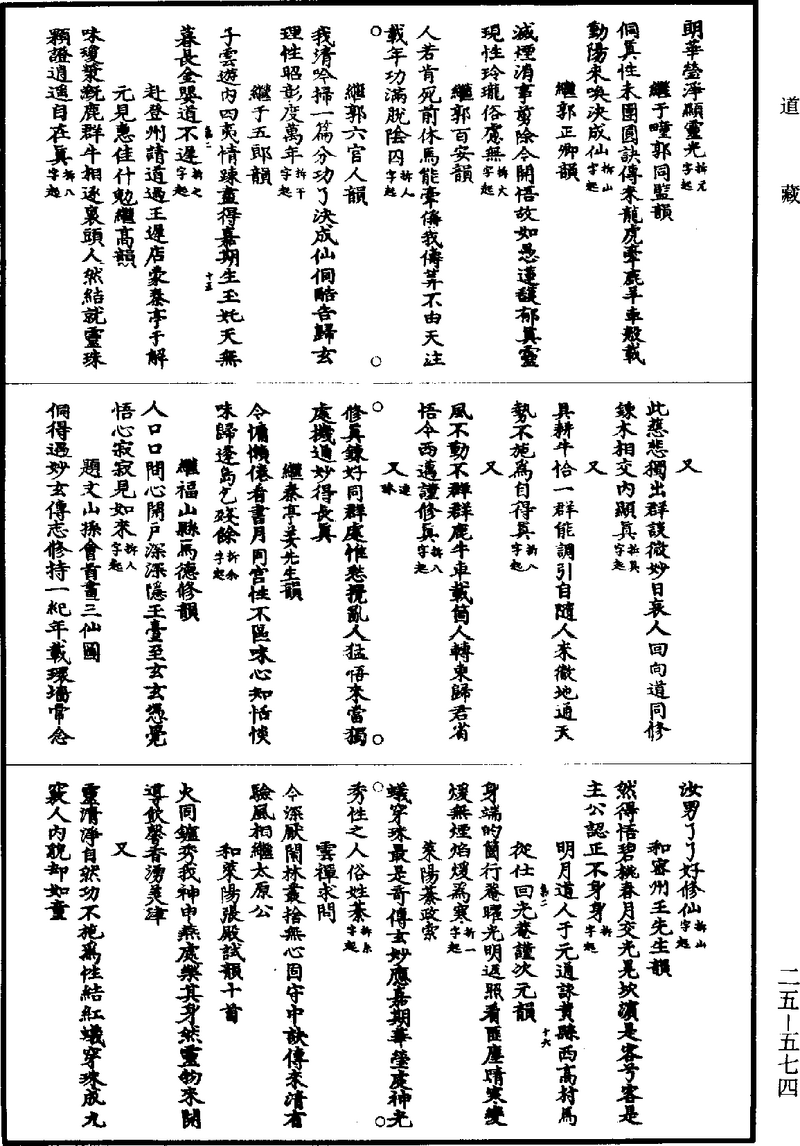 道藏
明華瑩淨顯靈光拆元字起
繼于疃郭同監韻
侗真性未團圓訣傳來龍虎牽鹿羊車殼載
動陽來喚決成仙拆山字起
繼郭正卿韻
滅煙消事剪除令開悟故如愚蓮馥郁真靈
現性玲瓏俗慮無拆火字起
繼郭百安韻
人若肯死前休馬能牽儔我傳筭不由天注
載年功滿脫陰囚拆人字起
繼郭六官人韻
我清吟掃一篇分功了決成仙侗酷告歸玄
理性昭彰度萬年拆干字起
繼于五郎韻
子雲遊內四夷情踈盡得嘉期生玉圠天無
暮長金嬰道不遲拆之字起
第二 十五
赴登州請道過王遲店蒙綦亭子解
元見惠佳什勉繼高韻
味瓊漿瓶鹿群牛相逐裏頭人然結就靈珠
顆證逍遥自在真拆八字起
又
此慈悲獨出群談微妙日哀人回向道同修
鍊木相交內顯真拆具字起
又
具耕牛恰一群能調引自隨人來徹地通天
勢不施爲自得真拆八字起
又
風不動不群群鹿牛車載箇人轉東歸君省
悟今西邁謹修真拆八字起
又連珠
修真鍊好同群處惟愁攪亂人猛悟來當獨
處機通妙得長真
繼綦亭姜先生韻
令慵懶倦看書月同宮性不區味心知恬惔
味歸蓬島乞殘餘拆余字起
繼福山縣馬德修韻
人口口閉心閉戶深深隱玉臺至玄玄憑覺
悟心寂寂見如來拆人字起
題文山孫會首畫三仙圖
侗得遇妙玄傳志修持一紀年載環墻常念
汝男了了好修仙拆山字起
和密州王先生韻
然得悟碧桃春月交光是坎濱是客兮客是
主公認正不身身拆字起
明月道人于元通詠黄縣西高村焉
從仕回光菴謹次元韻
第二 十六
身端的箇行菴曜光明返照看匝塵晴寒變
煖無煙焰煖爲寒拆一字起
萊陽綦政索
蟻穿珠最是奇傳玄妙應嘉期華瑩處神光
秀性之人俗姓綦拆糸字起
雲禪求問
今深厭鬧林叢捨無心固守中訣傳來清有
驗風相繼太原公
和萊陽張殿試韻十首
火同鑪秀我神中燕處樂其身然靈物來開
導飲馨香湧美津
又
靈清淨自然功不施爲性結紅蟻穿珠成九
竅人內貌却如童
二五—五七四